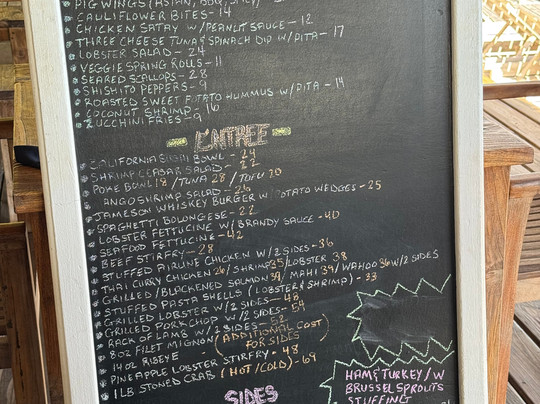 PIG WINGS (ASIAN, BBQ,
CAULIFLOWER BITES - 14
CHICKEN SATAY W/PEANUT SAUCE - 12
THREE CHEESE TUNA & SPINACH DIP W/PITA - 17
LOBSTER SALAD - 24
VEGGIE SPRING ROLLS - 11
SEARED SCALLOPS - 28
SHISHITO PEPPERS - 9
ROASTED SWEET POTATO HUMMUS W/PITA - 14
COCONUT SHRIMP - 16
ZUCCHINI FRIES - 9
ENTREE
CALIFORNIA SUSHI BOWL - 24
SHRIMP CEASAR SALAD - 22
POKE BOWL 18 / TUNA 28 / TOFU 20
ANGO SHRIMP SALAD - 26
JAMESON WHISKEY BURGER W/POTATO WEDGES - 25
SPAGHETTI BOLONGESE - 22
LOBSTER FETTUCINE W/BRANDY SAUCE - 40
SEAFOOD FETTUCINE - 42
BEEF STIRFRY - 28
STUFFED AIRLINE CHICKEN W/2 SIDES - 36
THAI CURRY CHICKEN 26 / SHRIMP 35 / LOBSTER 38
GRILLED / BLACKENED SALMON 39 / MAHI 39 / WAHOO 36 W/2 SIDES
STUFFED PASTA SHELLS (LOBSTER & SHRIMP) - 33
GRILLED LOBSTER W/2 SIDES - 48
GRILLED PORK CHOP W/2 SIDES - 59
RACK OF LAMB W/2 SIDES - 52
8oz FILET MIGNON (ADDITIONAL COST
14oz RIBEYE FOR SIDES)
PINEAPPLE LOBSTER STIRFRY - 48
1LB STONED CRAB (HOT/COLD) - 69
SIDES
HAM & TURKEY/W
BRUSSEL SPROUTS
STUFFING